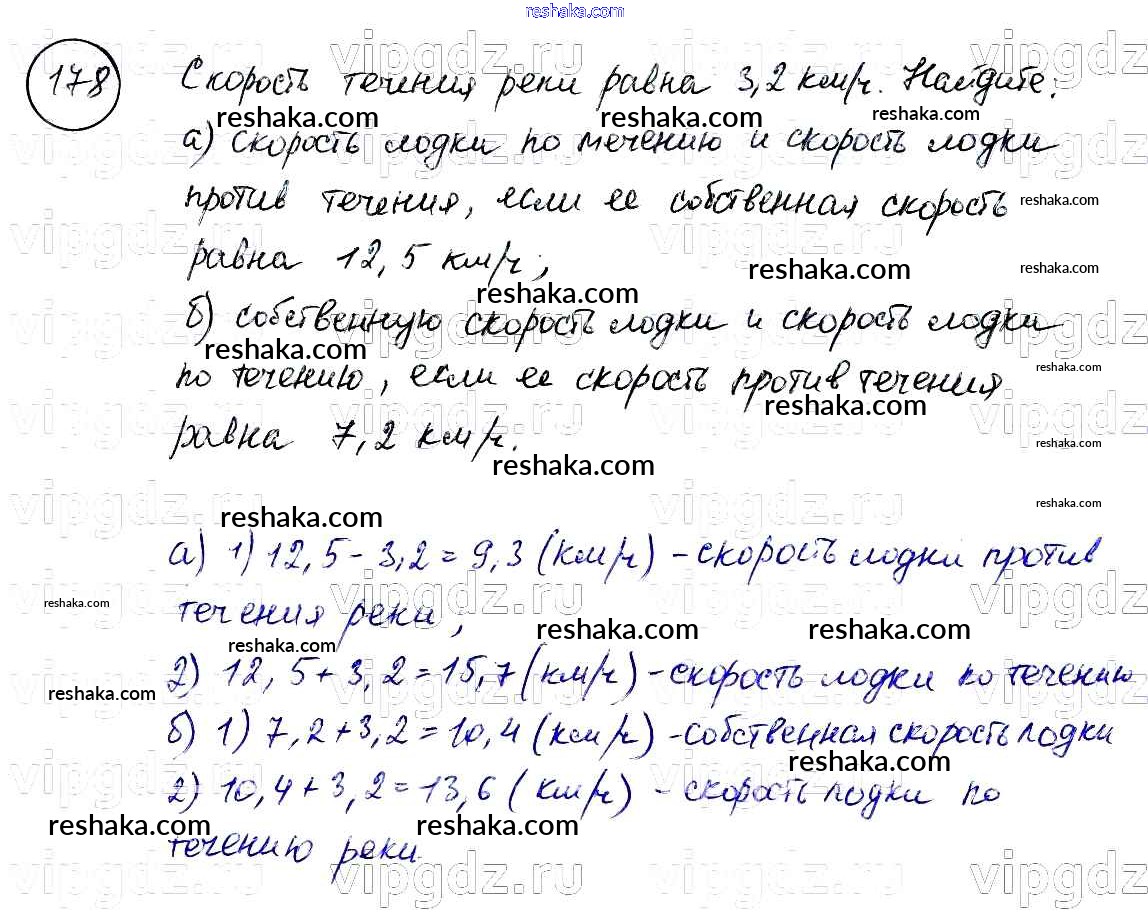 reshaka.com
178 Скорость течения реки равна 3,2 км/ч. Найдите:
а) скорость лодки по течению и скорость лодки
против течения, если ее собственная скорость
равна 12,5 км/ч;
б) собственную скорость лодки и скорость лодки
по течению, если ее скорость против течения
равна 7,2 км/ч.
а) 1) 12,5 - 3,2 = 9,3 (км/ч) - скорость лодки против
течения реки;
2) 12,5 + 3,2 = 15,7 (км/ч) - скорость лодки по течению
б) 1) 7,2 + 3,2 = 10,4 (км/ч) - собственная скорость лодки
2) 10,4 + 3,2 = 13,6 (км/ч) - скорость лодки по
течению реки